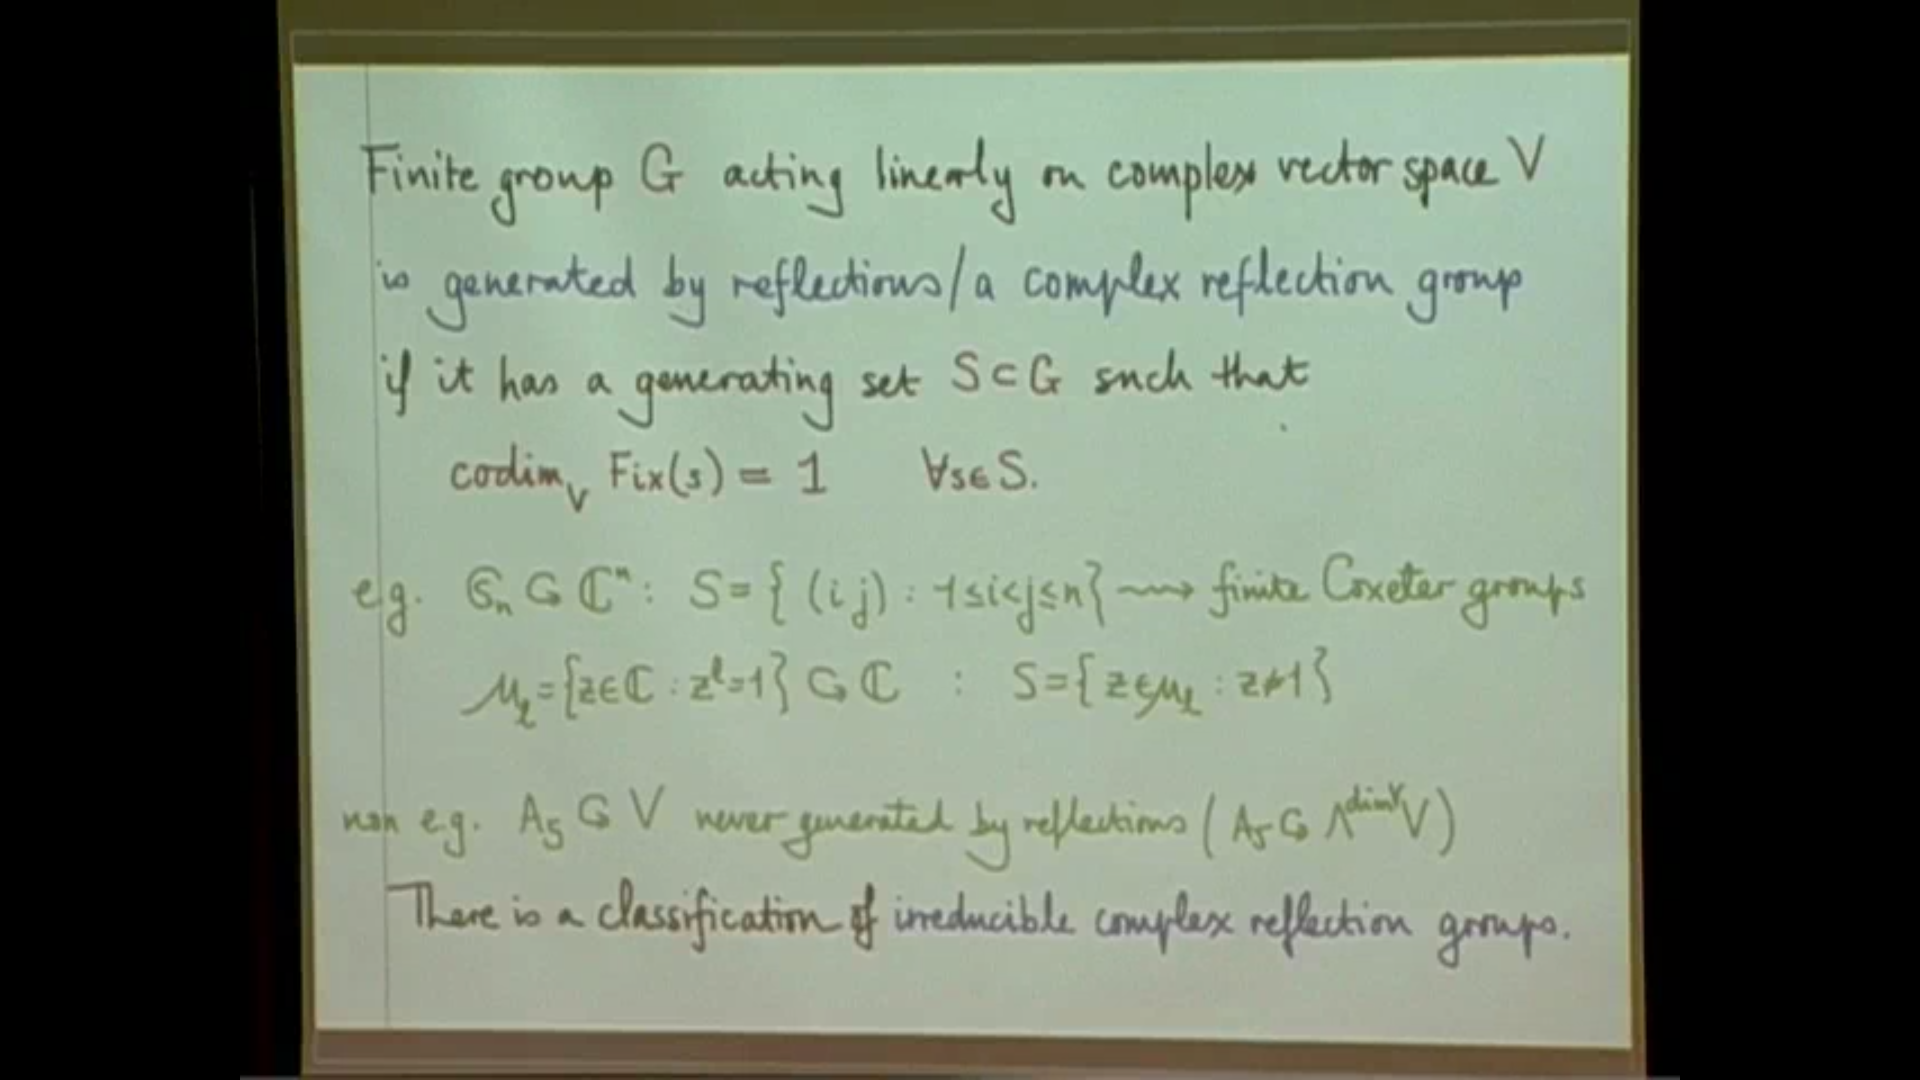 Finite group G acting linearly on complex vector space V
is generated by reflections/a complex reflection group
if it has a generating set S⊂G such that
codim_V Fix(s) = 1 ∀s∈S.
e.g. 𝔖_n ↺ ℂⁿ: S={(i j) : 1≤i<j≤n} ⟿ finite Coxeter groups
μ_ℓ={z∈ℂ : z^ℓ=1} ↺ ℂ : S={z∈μ_ℓ : z≠1}
non e.g. A₅ ↺ V never generated by reflections (A₅ ↺ Λ^{dim V} V)
There is a classification of irreducible complex reflection groups.